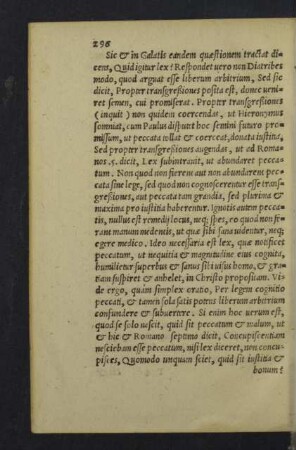 296
Sic & in Galatis eandem quæstionem tractat di-
cens, Quid igitur lex? Respondet uero non Diatribes
modo, quod arguat esse liberum arbitrium, Sed sic
dicit, Propter transgreßiones posita est, donec ueni-
ret semen, cui promiserat. Propter transgreßiones
(inquit) non quidem coërcendas, ut Hieronymus
somniat, cum Paulus disputet hoc semini futuro pro-
missum, ut peccata tollat & coërceat, donata iustitia,
Sed propter transgreßiones augendas, ut ad Roma-
nos .5. dicit, Lex subintrauit, ut abundaret pecca-
tum. Non quod non fierent aut non abundarent pec-
cata sine lege, sed quod non cognoscerentur esse trans-
greßiones, aut peccata tam grandia, sed plurima &
maxima pro iustitia haberentur. Ignotis autem pecca-
tis, nullus est remedij locus, neq; spes, eo quod non fe-
rant manum medentis, ut quæ sibi sana uidentur, neq;
egere medico. Ideo necessaria est lex, quæ notificet
peccatum, ut nequitia & magnitudine eius cognita,
humilietur superbus & sanus sibi uisus homo, & gra-
tiam suspiret & anhelet, in Christo propositam. Vi-
de ergo, quàm simplex oratio, Per legem cognitio
peccati, & tamen sola satis potens liberum arbitrium
confundere & subuertere. Si enim hoc uerum est,
quòd se solo nescit, quid sit peccatum & malum, ut
& hic & Romano. septimo dicit, Concupiscentiam
nesciebam esse peccatum, nisi lex diceret, non concu-
pisces, Quomodo unquam sciet, quid sit iustitia &
bonum?